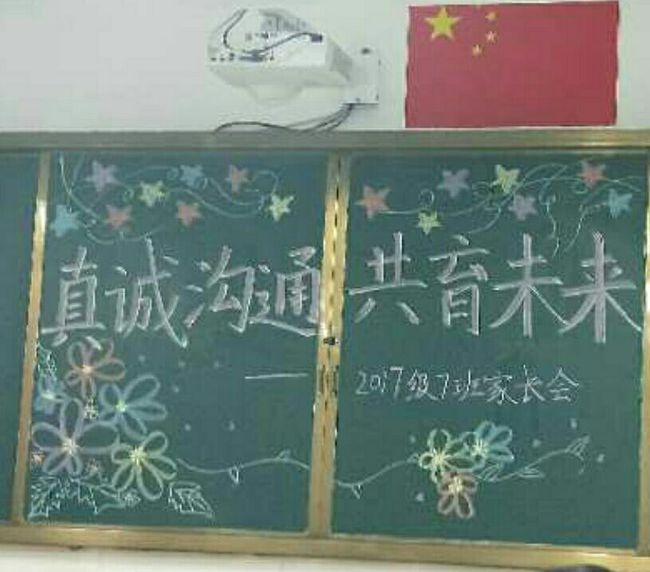 真诚沟通 共育未来
——2017级7班家长会